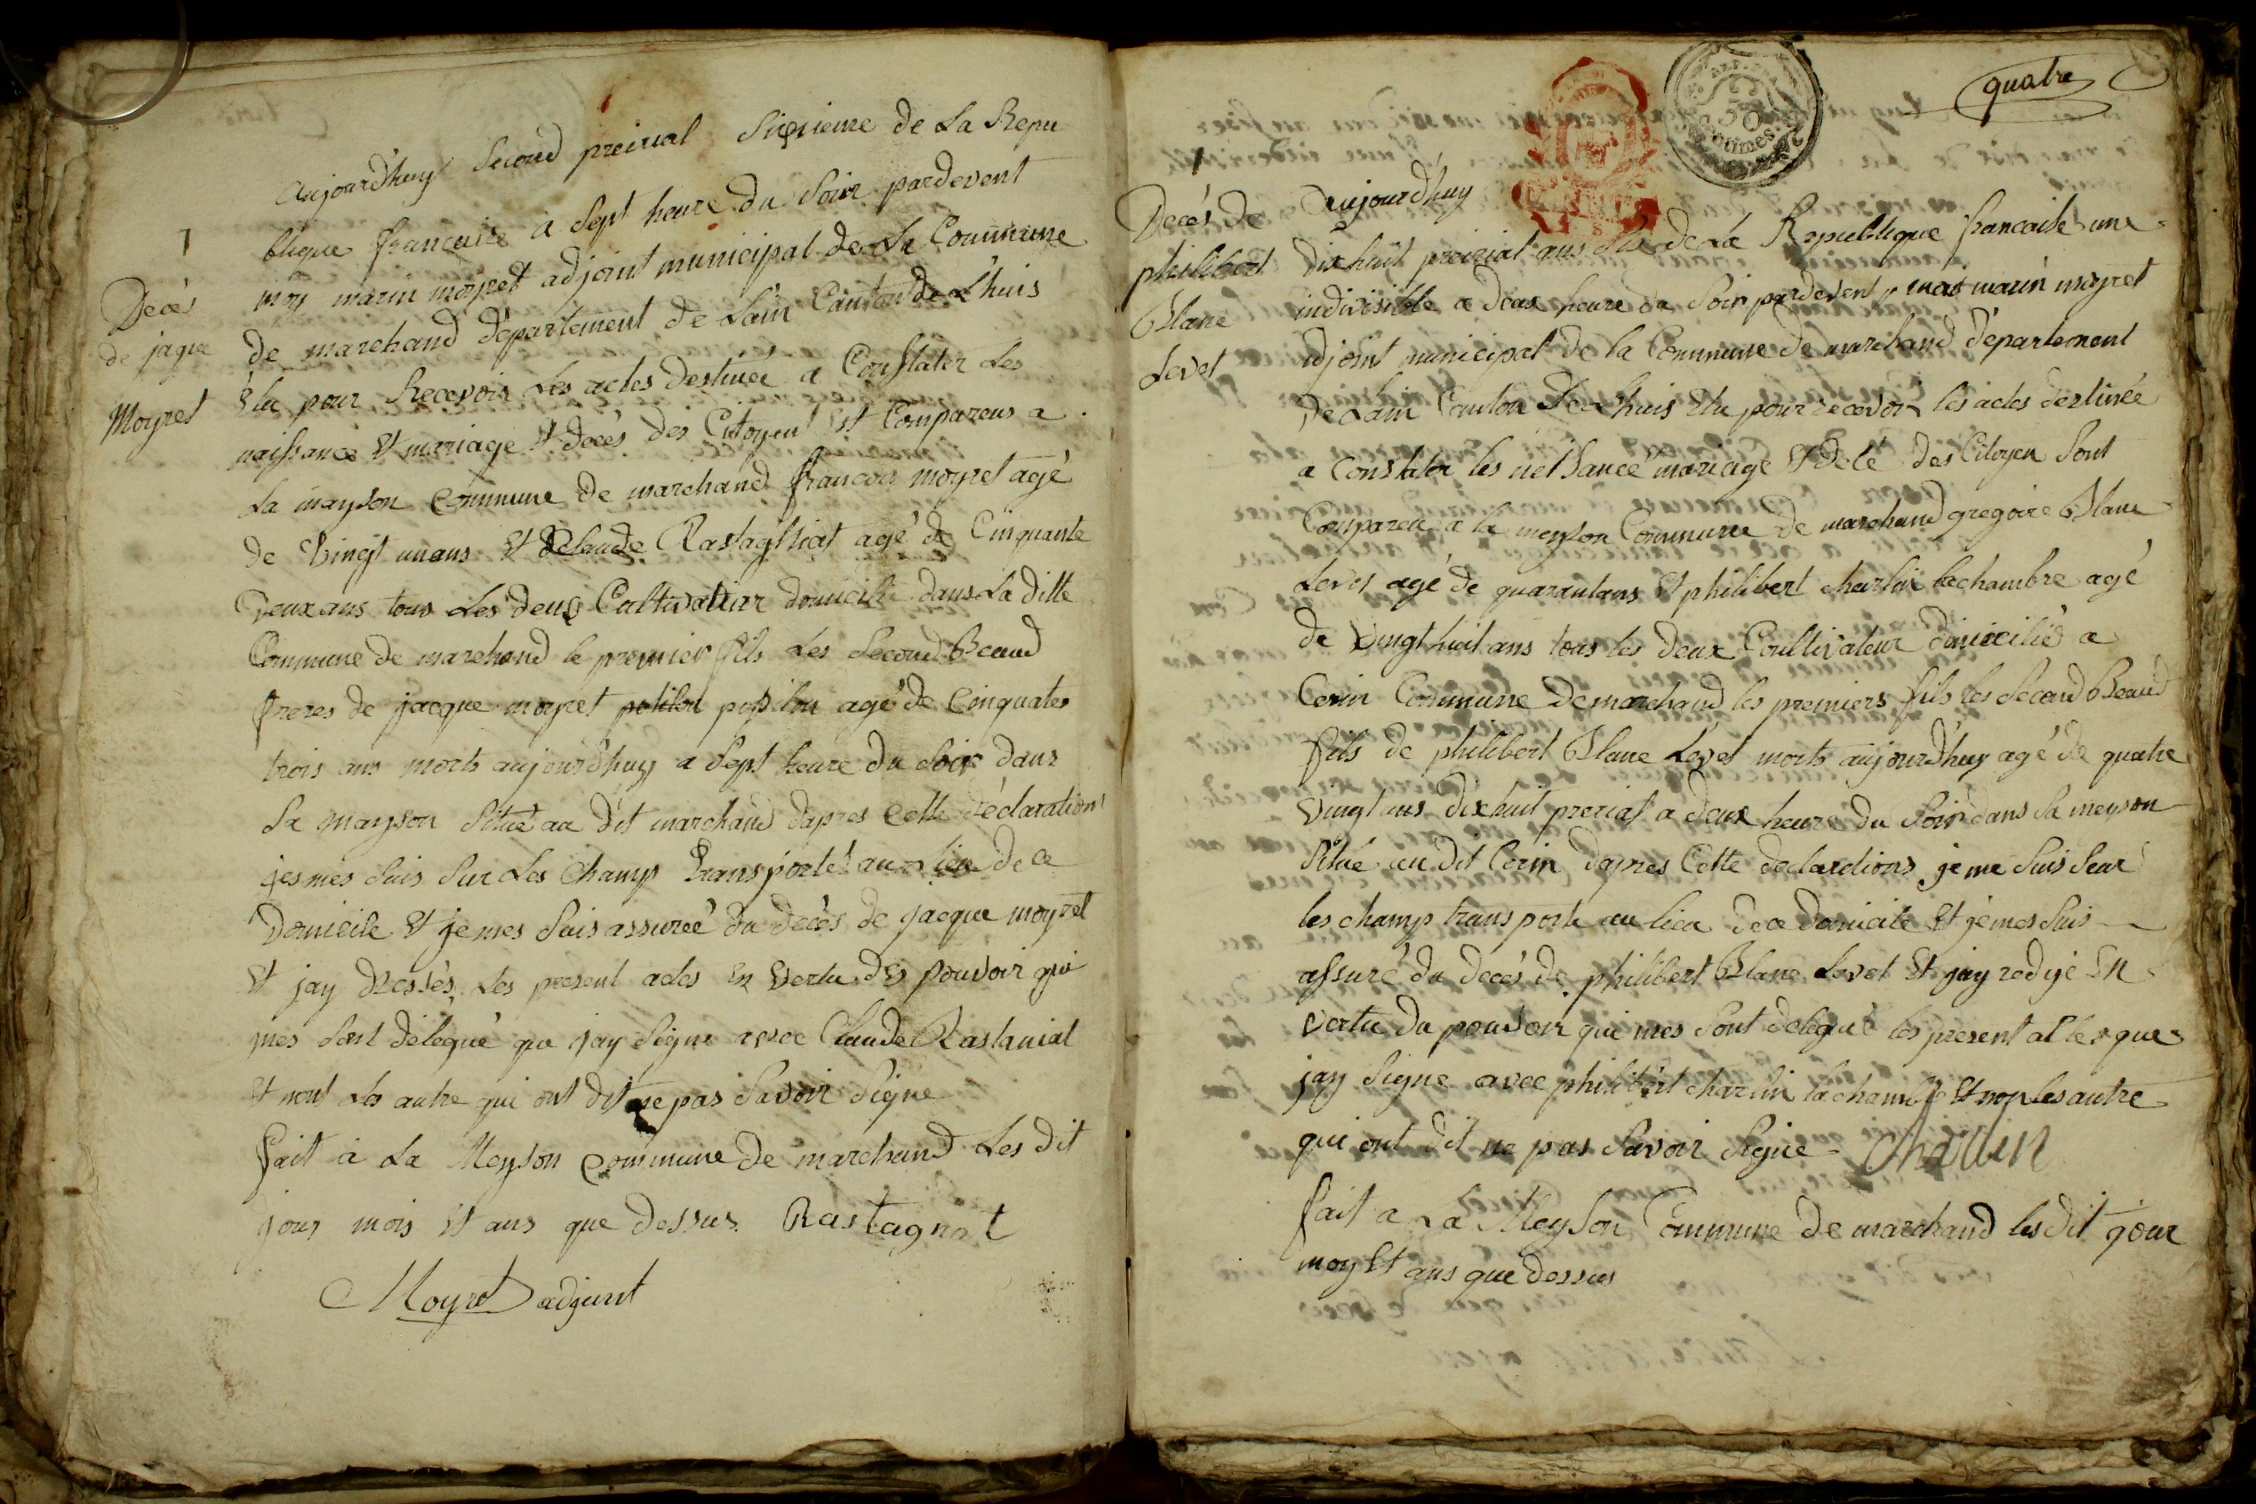 Decés
de jaque
Moyret
aujourd'huy second preirial sixieme de La Repu
blique francaise a sept heure du soir pardevent
moy marin moyret adjoint municipal de La Commune
de marchand departement de Lain Canton de Lhuis
Elu pour Recevoir Les actes destinée a Constater Les
naissance Et mariage Et decès des Citoyent Et Compareus a
La mayson Commune de marchand francois moyret agé
de Vingt unans Et Claude Rastagliat agé de Cinquante
Deux ans tous Les deux Cultivateur domicilié dans La ditte
Commune de marchand le premier fils Les Second Beaud
freres de jacque moyret pission agé de Cinquates
trois ans morts aujourd'huy a Sept heure du Soir dans
Sa mayson Situé au dit marchand dapres Cette déclaration
jesmes Suis Sur Les Champ transporté au lieu de ce
Domicile Et jemes Suis assurée du decès de jacque moyret
Et jay dressès Les present actes En Vertu des pouvoir qui
mes sont délegué que jay Signe avec Claude Rastaniat
Et nont Les autre qui ont dit ne pas Savoir Signe
fait à La Meyson Commune de marchand Les dit
jour mois Et ans que dessus Rastagnat
Moyret adjoint
quatre
50
centimes
Decés de
philibert
Blanc
Levet
aujourd'huy
dixhuit preirial ans six de La Republique francaise une
indivisible a deux heure du Soir pardevent moi marin moyret
adjoint municipal de la Commune de marchand departement
De Lain Canton de Lhuis Elu pour recevoir les actes destinée
a Constater les nessance mariage Et décé des Citoyen Sont
Compareu a la meyson Commune de marchand gregoire Blanc
Levet agé de quarantans Et philibert charlin lachambre agé
de Vingt huit ans tous les deux Coultivateur domicilié a
Cerin Commune de marchand les premiers fils les Second Beaud
fils de philibert Blanc Levet morts aujourd'huy agé de quatre
Vingt ans dixhuit prerial a deux heure du Soir dans Sa meyson
Situé au dit Cerin dapres Cette declarations je me Suis Seur
les champ transporte au lieu de ce domicile Et jemes Suis
assuré du decés de philibert Blanc Levet Et jay redijé En
Vertu du pouvoir qui mes Sont delegué les present actes que
jay Signe avec philibert charlin lachambre Et non les autre
qui ont dit ne pas Savoir Signe Charlin
fait a La Meyson Commune de marchand les dit jour
moy Et ans que dessus